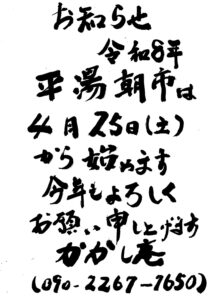 お知らせ
令和8年
平湯朝市は
4月25日(土)
から始めます
今年もよろしく
お願い申し上げます
かかし庵
(090-2267-7650)